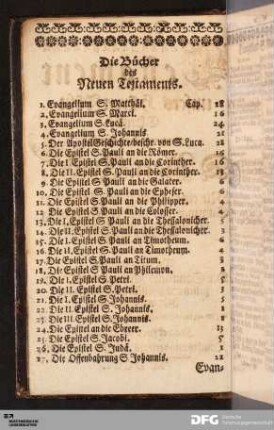 Die Bücher
des
Neuen Testaments.
1. Evangelium S. Matthäi. Cap. 28
2. Evangelium S. Marci. 16
3. Evangelium S. Lucä. 24
4. Evangelium S. Johannis 21
5. Der ApostelGeschichte/beschr. von S. Luca. 28
6. Die Epistel S. Pauli an die Römer. 16
7. Die I. Epistel S. Pauli an die Corinther. 16
8. Die II. Epistel S. Pauli an die Corinther. 13
9. Die Epistel S. Pauli an die Galater. 6
10. Die Epistel S. Pauli an die Epheser. 6
11. Die Epistel S. Pauli an die Philipper. 4
12. Die Epistel S. Pauli an die Colosser. 4
13. Die I. Epistel S. Pauli an die Thessalonicher. 5
14. Die II. Epistel S. Pauli an die Thessalonicher. 3
15. Die I. Epistel S. Pauli an Timotheum. 6
16. Die II. Epistel S. Pauli an Timotheum. 4
17. Die Epistel S. Pauli an Titum. 3
18. Die Epistel S. Pauli an Philemon. 1
19. Die I. Epistel S. Petri. 5
20. Die II. Epistel S. Petri. 3
21. Die I. Epistel S. Johannis. 5
22. Die II. Epistel S. Johannis. 1
23. Die III. Epistel S. Johannis. 1
24. Die Epistel an die Ebreer. 13
25. Die Epistel S. Jacobi. 5
26. Die Epistel S. Judä. 1
27. Die Offenbahrung S. Johannis. 22
Evan-
DFG